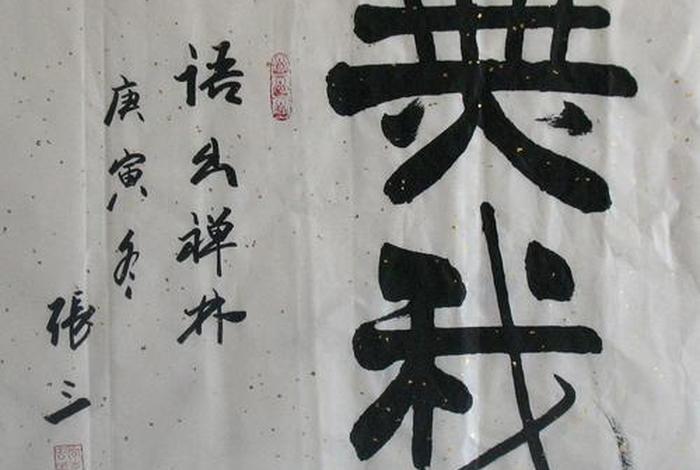 無我
语出禅林
庚寅冬
張三